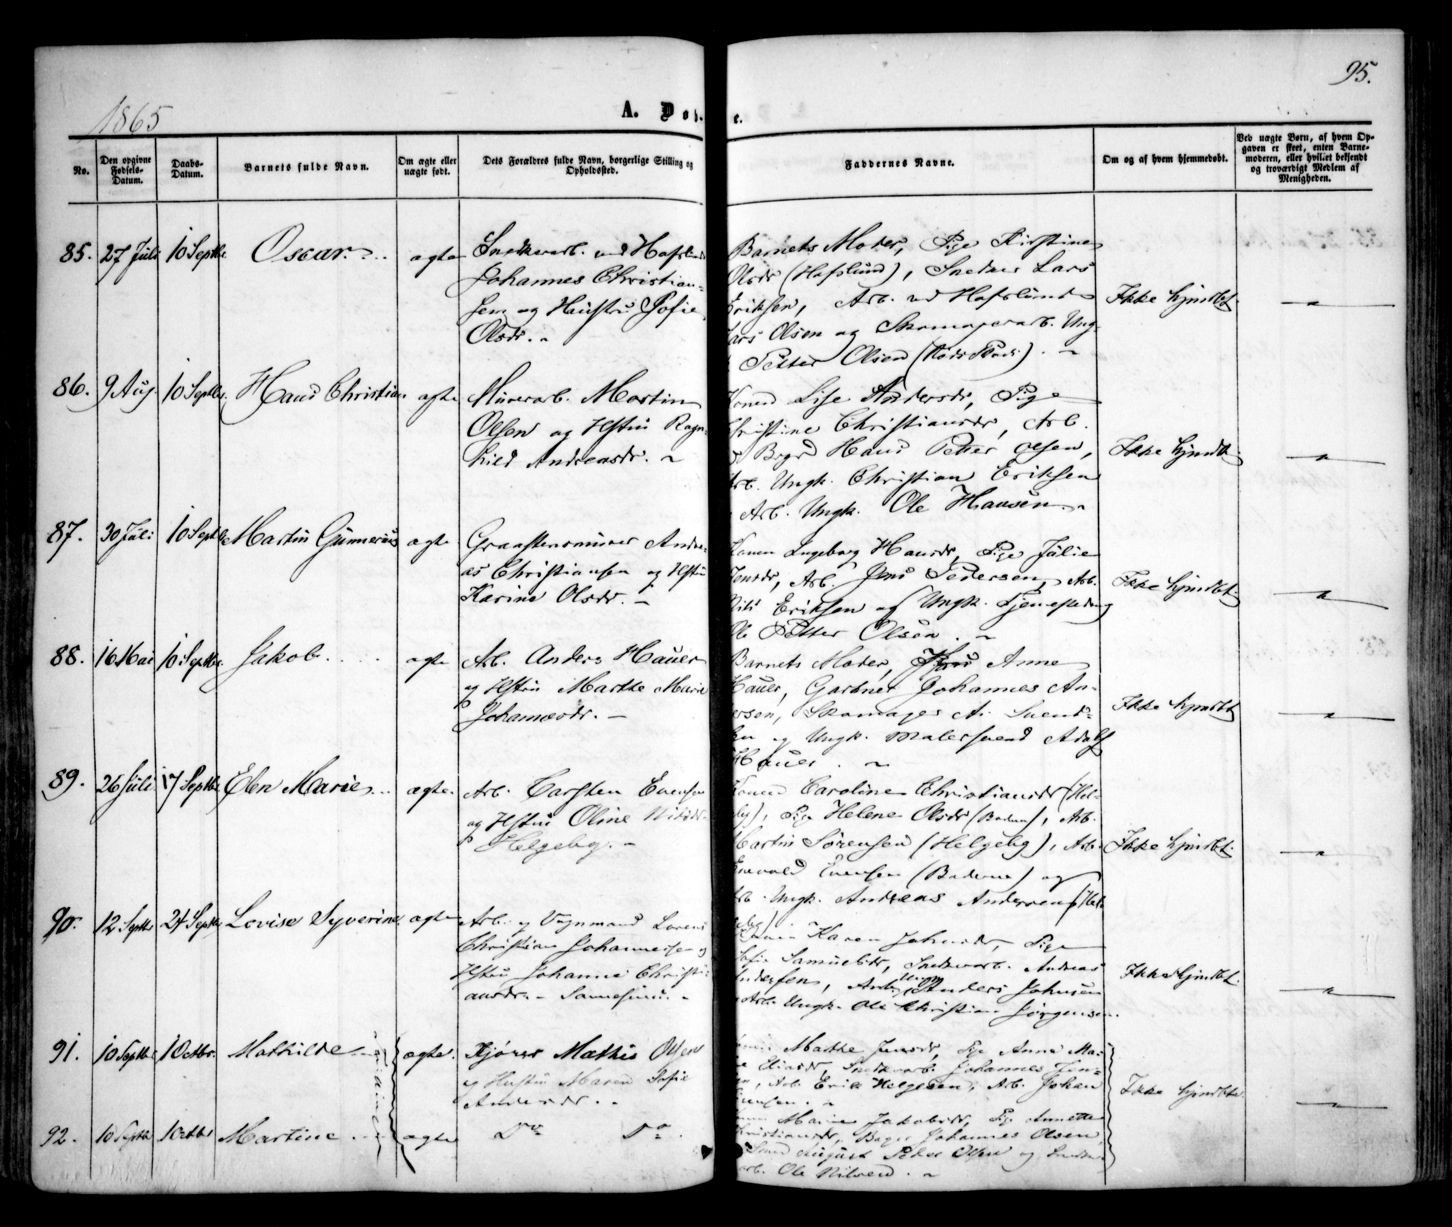 95.
1865
A. Dø
e.
No.
Den opgivne Fødsels-Datum.
Daabs-Datum.
Barnets fulde Navn.
Om ægte eller uægte født.
Dets Forældres fulde Navn, borgerlige Stilling og Opholdssted.
Faddernes Navne.
Om og af hvem hjemmedøbt.
Ved uægte Børn, af hvem Opgaven er skeet, enten Barnemoderen, eller hvilket bekjendt og troværdigt Medlem af Menigheden.
85. 27 Juli 10 Septbr Oscar. ægte
Johannes Christian-
sen og Hustru Sofie
Olsdr.
Barnets Moder, Pige Kirstine
Olsdr (Hafslund), Snedker Lars
Eriksen, Arb. ved Hafslund
Lars Olsen og Skomagerarb. Ung.
Petter Olsen
Ikke hjmdbt.
86. 9 Aug. 10 Septbr. Hans Christian ægte
Murerarb. Martin
Olsen og Hstru Ragn-
hild Andreasdr.
Konen Lise Andersdr, Pige
Christine Christiansdr, Arb.
Hans Petter Olsen,
Arb. Ungk. Christian Eriksen
Arb. Ungk. Ole Hansen.
Ikke hjmdbt.
87. 30 Juli 10 Septbr Martin Gunnerius ægte
Graastensmurer Andre-
as Christiansen og Hstru
Karine Olsdr.
Konen Ingeborg Hansdr, Pige Julie
Jensdr, Arb. Jens Pedersen, Arb.
Nils Eriksen og Ungk. Tjenestedreng
Ole Petter Olsen.
Ikke hjmdbt.
88. 16 Mai 10 Septbr Jakob. ægte
Arb. Anders Hauer
og Hstru Marthe Marie
Johannesdr.
Barnets Moder, Anne
Hauer, Gartner Johannes An-
dersen, Skomager A. Svend-
sen og Ungk. Malersvend Adolf
Hauer.
Ikke hjmdbt
89. 26 Juli 17 Septbr Elen Marie ægte
Arb. Carsten Evensen
og Hstru Oline Nilsdr
Helgeby.
Konen Caroline Christiansdr (Hel-
geby), Pige Helene Olsdr, Arb.
Martin Sørensen (Helgeby), Arb.
Enevald Evensen og
Arb. Ungk. Andreas Andersen (Hel-
geby)
Ikke hjmdbt.
90. 12 Septbr 24 Septbr Lovise Syverine ægte
Arb. og Vognmand Lorens
Christian Johannesen og
Hstru Johanne Christi-
ansdr. Sannesund.
Karen Johnsdr, Pige
Sofie Samuelsdr, Snedkerarb. Andreas
Andersen, Arb. Anders Johnsen
og Arb. Ungk. Ole Christian Jørgensen.
Ikke hjmdbt.
91. 10 Septbr 1 Octbr. Mathilde ægte.
Kjører Mathis Olsen
og Hustru Maren Sofie
Andersdr.
Marthe Jensdr, Pige Anne Ma-
Snedkerarb. Johannes Jen-
sen, Arb. Erik Helgesen, Arb. Johan
Ikke hjmdbt.
92. 10 Septbr 1 Octbr Martine ægte
Do Do.
Maria Jakobsdr, Pige Annette
Christiansdr, Bager Johannes Olsen
Smed August Peter Olsen og Snedker-
arb. Ole Nilsen.